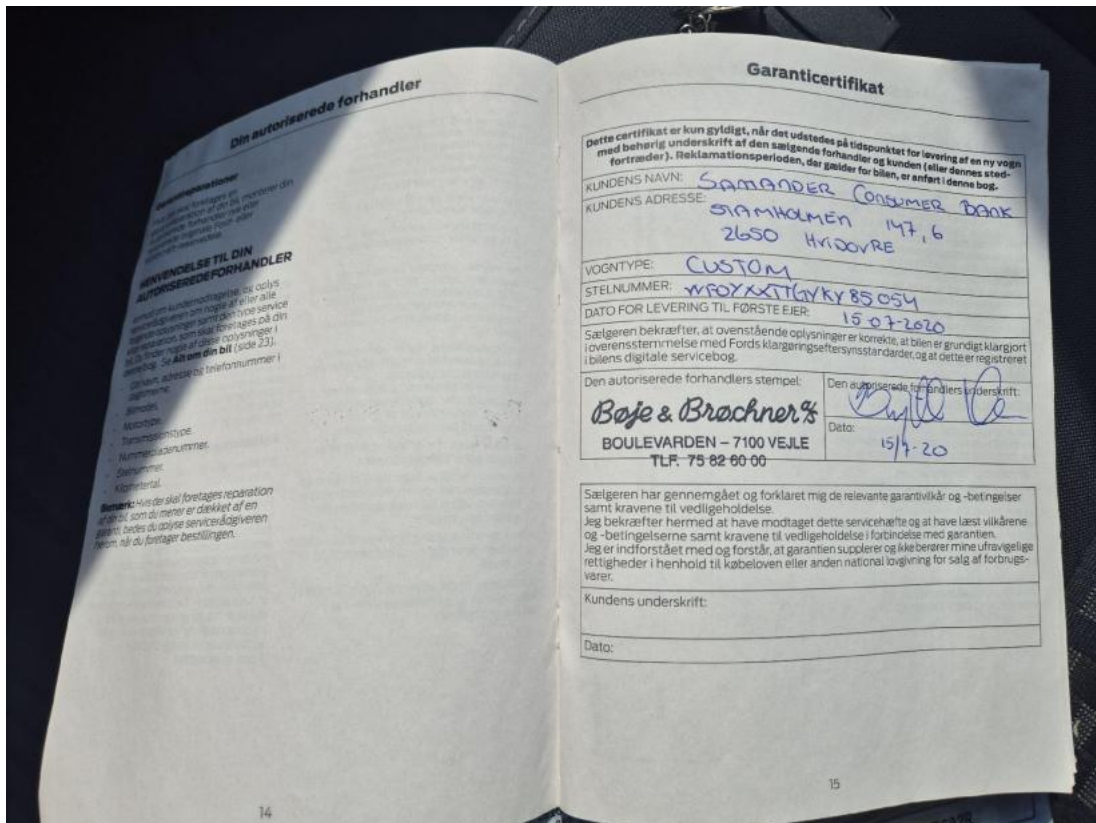 Din autoriserede forhandler
Garantireparationer
HENVENDELSE TIL DIN
AUTORISEREDE FORHANDLER
denne bog. Se Alt om din bil (side 23).
- Dit navn, adresse og telefonnummer i
dagtimerne.
- Bilmodel.
- Motortype.
- Transmissionstype.
- Nummerpladenummer.
- Stelnummer.
- Kilometertal.
Bemærk: Hvis der skal foretages reparation
af din bil, som du mener er dækket af en
garanti, bedes du oplyse servicerådgiveren
herom, når du foretager bestillingen.
14
Garanticertifikat
Dette certifikat er kun gyldigt, når det udstedes på tidspunktet for levering af en ny vogn
med behørig underskrift af den sælgende forhandler og kunden (eller dennes sted-
fortræder). Reklamationsperioden, der gælder for bilen, er anført i denne bog.
KUNDENS NAVN: SAMANDER CONSUMER BANK
KUNDENS ADRESSE: STAMHOLMEN 147, 6
2650 HVIDOVRE
VOGNTYPE: CUSTOM
STELNUMMER: WF0YXXTTGYKY85054
DATO FOR LEVERING TIL FØRSTE EJER: 15-07-2020
Sælgeren bekræfter, at ovenstående oplysninger er korrekte, at bilen er grundigt klargjort
i overensstemmelse med Fords klargøringseftersynsstandarder, og at dette er registreret
i bilens digitale servicebog.
Den autoriserede forhandlers stempel:
Bøje & Brøchner A/S
BOULEVARDEN – 7100 VEJLE
TLF. 75 82 60 00
Den autoriserede forhandlers underskrift:
Dato:
15/7-20
Sælgeren har gennemgået og forklaret mig de relevante garantivilkår og -betingelser
samt kravene til vedligeholdelse.
Jeg bekræfter hermed at have modtaget dette servicehæfte og at have læst vilkårene
og -betingelserne samt kravene til vedligeholdelse i forbindelse med garantien.
Jeg er indforstået med og forstår, at garantien supplerer og ikke berører mine ufravigelige
rettigheder i henhold til købeloven eller anden national lovgivning for salg af forbrugs-
varer.
Kundens underskrift:
Dato:
15